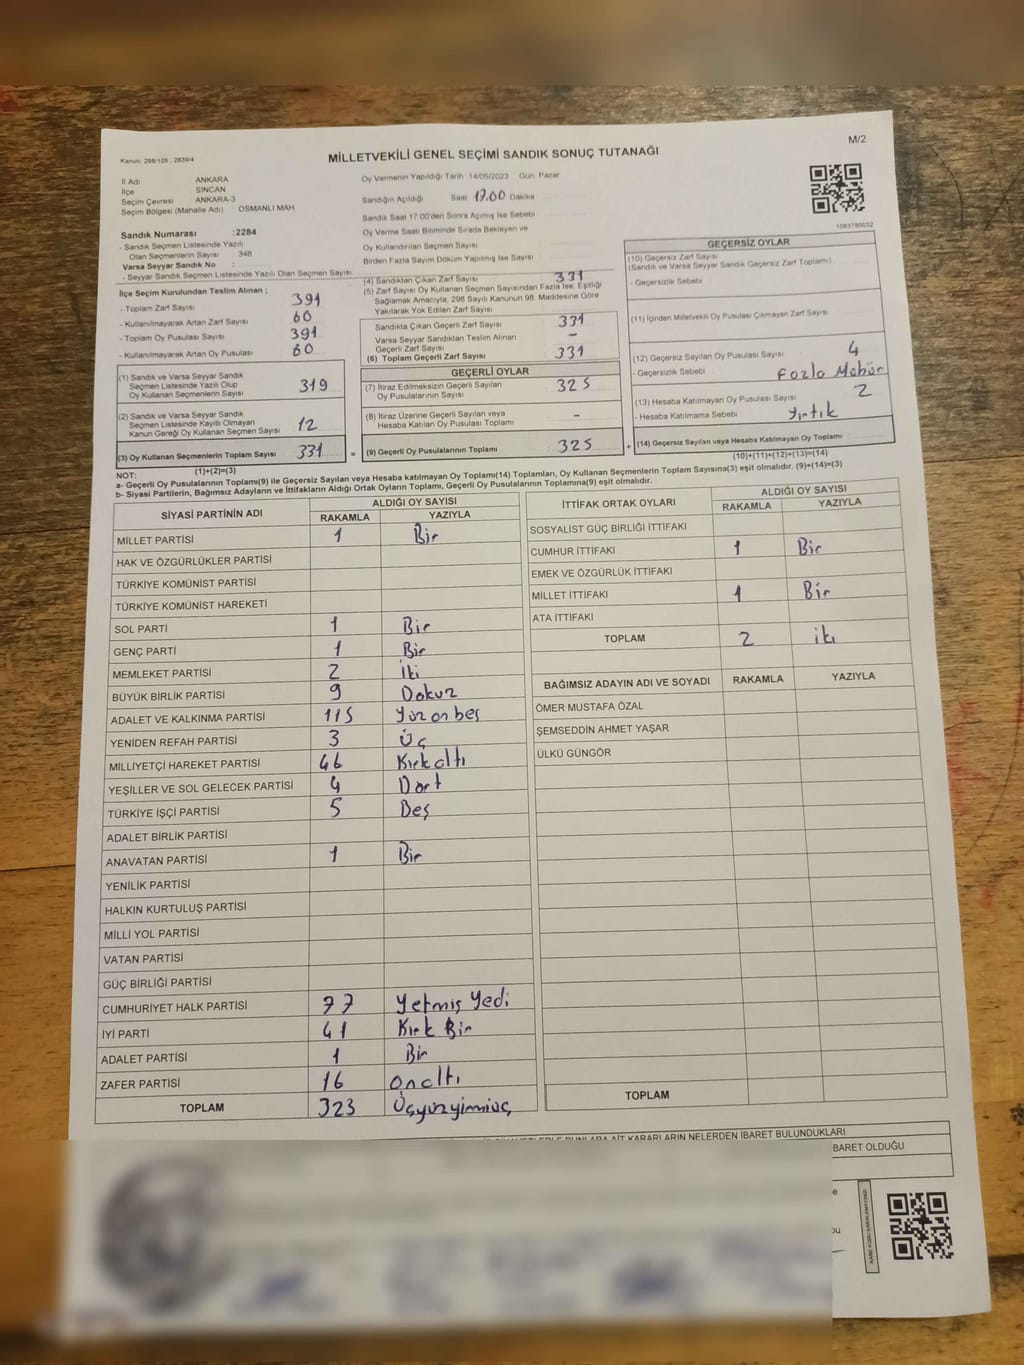 M/2
Kanun: 298/105 , 2839/4
MİLLETVEKİLİ GENEL SEÇİMİ SANDIK SONUÇ TUTANAĞI
İl Adı ANKARA
İlçe SİNCAN
Seçim Çevresi ANKARA-3
Seçim Bölgesi (Mahalle Adı) : OSMANLI MAH
Sandık Numarası :2284
- Sandık Seçmen Listesinde Yazılı
Olan Seçmenlerin Sayısı : 348
Varsa Seyyar Sandık No :
- Seyyar Sandık Seçmen Listesinde Yazılı Olan Seçmen Sayısı
Oy Vermenin Yapıldığı Tarih :14/05/2023 Gün: Pazar
Sandığın Açıldığı Saat 17.00 Dakika
Sandık Saat 17:00'den Sonra Açılmış İse Sebebi
Oy Verme Saati Bitiminde Sırada Bekleyen ve
Oy Kullandırılan Seçmen Sayısı
Birden Fazla Sayım Döküm Yapılmış İse Sayısı
1083780032
İlçe Seçim Kurulundan Teslim Alınan ;
- Toplam Zarf Sayısı 391
- Kullanılmayarak Artan Zarf Sayısı 60
- Toplam Oy Pusulası Sayısı 391
- Kullanılmayarak Artan Oy Pusulası 60
(1) Sandık ve Varsa Seyyar Sandık
Seçmen Listesinde Yazılı Olup
Oy Kullanan Seçmenlerin Sayısı 319
(2) Sandık ve Varsa Seyyar Sandık
Seçmen Listesinde Kayıtlı Olmayan
Kanun Gereği Oy Kullanan Seçmen Sayısı 12
(3) Oy Kullanan Seçmenlerin Toplam Sayısı 331 =
(1)+(2)=(3)
(4) Sandıktan Çıkan Zarf Sayısı 331
(5) Zarf Sayısı Oy Kullanan Seçmen Sayısından Fazla İse, Eşitliği
Sağlamak Amacıyla, 298 Sayılı Kanunun 98. Maddesine Göre
Yakılarak Yok Edilen Zarf Sayısı
Sandıkta Çıkan Geçerli Zarf Sayısı 331
Varsa Seyyar Sandıktan Teslim Alınan
Geçerli Zarf Sayısı -
(6) Toplam Geçerli Zarf Sayısı 331
GEÇERLİ OYLAR
(7) İtiraz Edilmeksizin Geçerli Sayılan
Oy Pusulalarının Sayısı 325
(8) İtiraz Üzerine Geçerli Sayılan veya
Hesaba Katılan Oy Pusulası Toplamı -
(9) Geçerli Oy Pusulalarının Toplamı 325 +
GEÇERSİZ OYLAR
(10) Geçersiz Zarf Sayısı
(Sandık ve Varsa Seyyar Sandık Geçersiz Zarf Toplamı)
- Geçersizlik Sebebi
(11) İçinden Milletvekili Oy Pusulası Çıkmayan Zarf Sayısı
(12) Geçersiz Sayılan Oy Pusulası Sayısı 4
- Geçersizlik Sebebi Fazla Mühür
(13) Hesaba Katılmayan Oy Pusulası Sayısı 2
- Hesaba Katılmama Sebebi Yırtık
(14) Geçersiz Sayılan veya Hesaba Katılmayan Oy Toplamı
(10)+(11)+(12)+(13)=(14)
NOT:
a- Geçerli Oy Pusulalarının Toplamı(9) ile Geçersiz Sayılan veya Hesaba katılmayan Oy Toplamı(14) Toplamları, Oy Kullanan Seçmenlerin Toplam Sayısına(3) eşit olmalıdır. (9)+(14)=(3)
b- Siyasi Partilerin, Bağımsız Adayların ve İttifakların Aldığı Ortak Oyların Toplamı, Geçerli Oy Pusulalarının Toplamına(9) eşit olmalıdır.
SİYASİ PARTİNİN ADI ALDIĞI OY SAYISI
RAKAMLA YAZIYLA
MİLLET PARTİSİ 1 Bir
HAK VE ÖZGÜRLÜKLER PARTİSİ
TÜRKİYE KOMÜNİST PARTİSİ
TÜRKİYE KOMÜNİST HAREKETİ
SOL PARTİ 1 Bir
GENÇ PARTİ 1 Bir
MEMLEKET PARTİSİ 2 İki
BÜYÜK BİRLİK PARTİSİ 9 Dokuz
ADALET VE KALKINMA PARTİSİ 115 Yüzonbeş
YENİDEN REFAH PARTİSİ 3 Üç
MİLLİYETÇİ HAREKET PARTİSİ 46 Kırkaltı
YEŞİLLER VE SOL GELECEK PARTİSİ 4 Dört
TÜRKİYE İŞÇİ PARTİSİ 5 Beş
ADALET BİRLİK PARTİSİ
ANAVATAN PARTİSİ 1 Bir
YENİLİK PARTİSİ
HALKIN KURTULUŞ PARTİSİ
MİLLİ YOL PARTİSİ
VATAN PARTİSİ
GÜÇ BİRLİĞİ PARTİSİ
CUMHURİYET HALK PARTİSİ 77 Yetmiş Yedi
İYİ PARTİ 41 Kırk Bir
ADALET PARTİSİ 1 Bir
ZAFER PARTİSİ 16 Onaltı
TOPLAM 323 Üçyüzyirmiüç
İTTİFAK ORTAK OYLARI ALDIĞI OY SAYISI
RAKAMLA YAZIYLA
SOSYALİST GÜÇ BİRLİĞİ İTTİFAKI
CUMHUR İTTİFAKI 1 Bir
EMEK VE ÖZGÜRLÜK İTTİFAKI
MİLLET İTTİFAKI 1 Bir
ATA İTTİFAKI
TOPLAM 2 iki
BAĞIMSIZ ADAYIN ADI VE SOYADI RAKAMLA YAZIYLA
ÖMER MUSTAFA ÖZAL
ŞEMSEDDİN AHMET YAŞAR
ÜLKÜ GÜNGÖR
TOPLAM
BUNLARA AİT KARARLARIN NELERDEN İBARET BULUNDUKLARI
BARET OLDUĞU